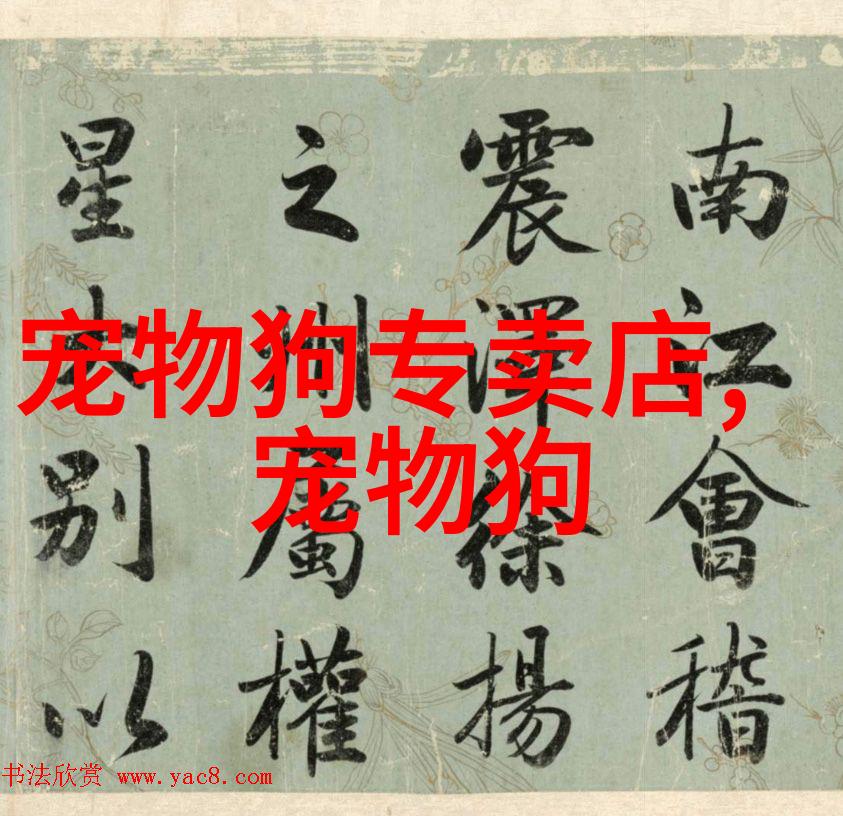 南江會稽
震澤徐揚
之州屬權
星本別以
宠物狗专卖店,
宠物狗
书法欣赏 www.yac8.com